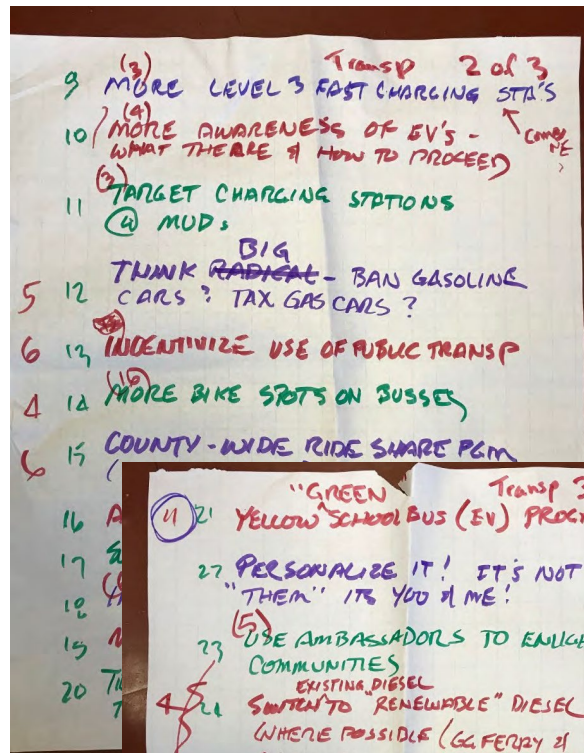 Transp 2 of 3
(3)
9 MORE LEVEL 3 FAST CHARGING STA'S
(4)
10 MORE AWARENESS OF EV'S -
WHAT THE ARE & HOW TO PROCEED
(3)
11 TARGET CHARGING STATIONS
@ MUDs
BIG
5 12 THINK RADICAL - BAN GASOLINE
CARS? TAX GAS CARS?
6 13 INCENTIVIZE USE OF PUBLIC TRANSP
4 14 MORE BIKE SPOTS ON BUSSES
6 15 COUNTY-WIDE RIDE SHARE PGM
16 A
17
18
19
20
"GREEN Transp 3
4 21 YELLOW SCHOOL BUS (EV) PROG
22 PERSONALIZE IT! IT'S NOT
"THEM" ITS YOU & ME!
(5)
23 USE AMBASSADORS TO ENLIGE
COMMUNITIES
EXISTING DIESEL
4 24 SWITCH TO "RENEWABLE" DIESEL
WHERE POSSIBLE (GG FERRY &